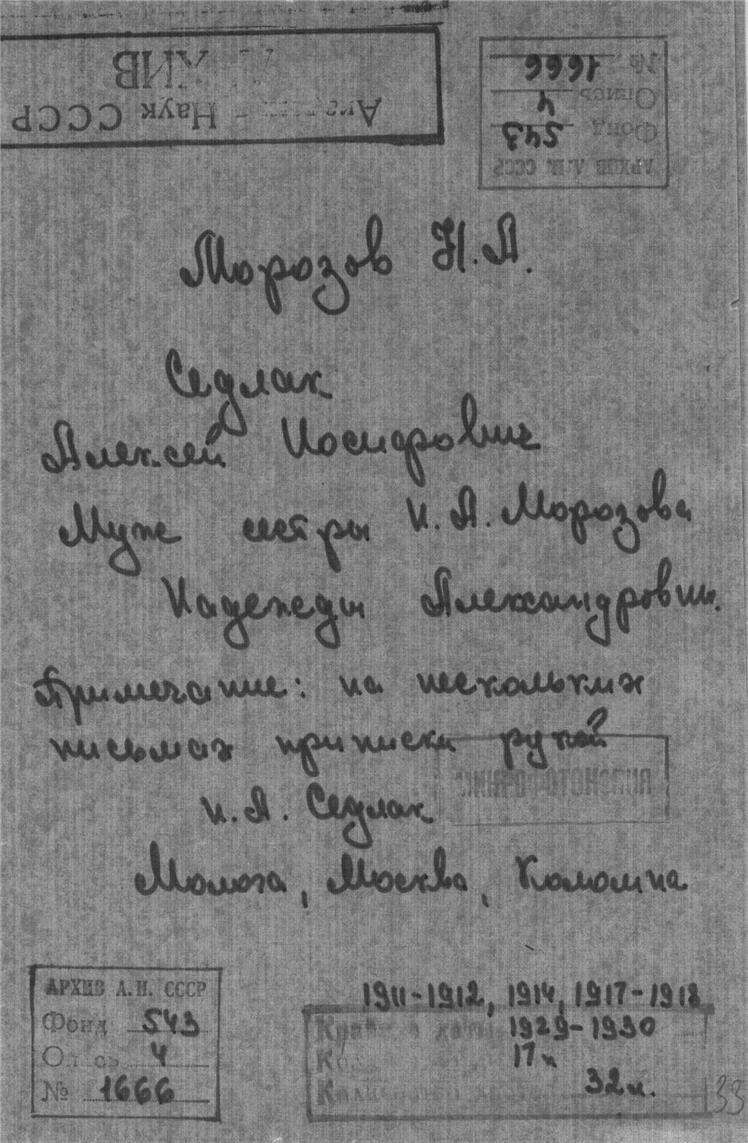 ХИВ
Наук СССР
№ 1666
Опись 4
Фонд 543
АРХИВ А.Н. СССР
Морозов Н.А.
Седлак
Алексей Иосифович
Муж сестры Н.А. Морозова
Надежды Александровны.
Примечание: на нескольких
письмах приписки рукой
Н.А. Седлак
Молога, Москва, Коломна
АРХИВ А.Н. СССР
Фонд 543
Опись 4
№ 1666
1911-1912, 1914, 1917-1918
1929-1930
17
32 л.
33